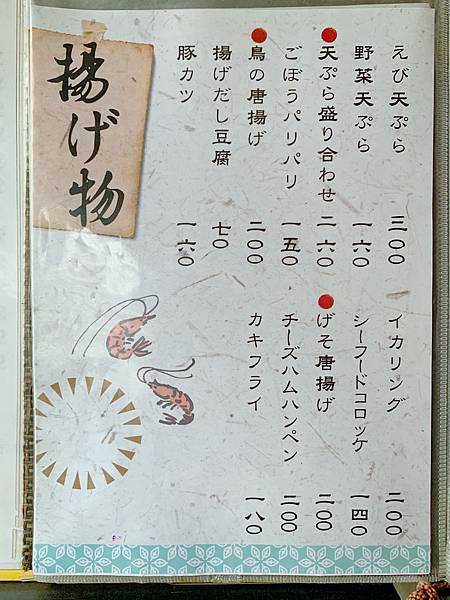 揚げ物
えび天ぷら 三〇〇
野菜天ぷら 一六〇
天ぷら盛り合わせ 二六〇
ごぼうパリパリ 一五〇
鳥の唐揚げ 二〇〇
揚げだし豆腐 七〇
豚カツ 一六〇
イカリング 二〇〇
シーフードコロッケ 一四〇
げそ唐揚げ 二〇〇
チーズハムハンペン 二〇〇
カキフライ 一八〇